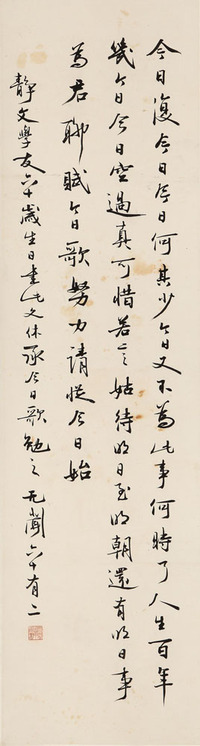 今日復今日今日何其少今日又不為此事何時了人生百年
幾今日今日空過真可惜若言姑待明日至明朝還有明日事
為君聊賦今日歌努力請從今日始
靜文學友六十歲生日書此文休承今日歌勉之 无聞六十有二